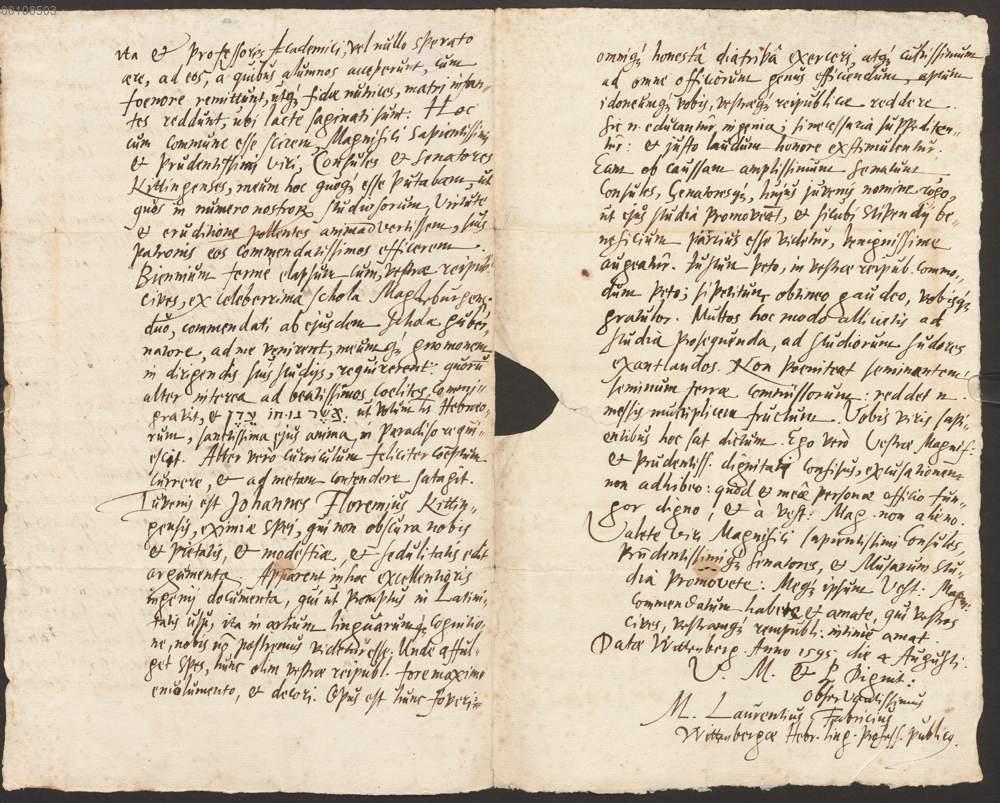 00108503
ita & Professores Academici, vel nullo sperato
aere, ad eos, à quibus alumnos acceperunt, cum
foenore remittunt, utq; fidae nutrices, matri infan-
tes reddunt, ubi lacte saginati sunt. Hoc
cum commune esse scirem, Magnifici Sapientissimi
& Prudentissimi viri, Consules & Senatores
Kittingenses, meum hoc quoq; esse putabam, ut
quos in numero nostror. studiosorum, virtute
& eruditione pollentes animadvertissem, suis
patronis eos commendatissimos efficerem.
Biennium ferme elapsum cum, vestrae reipub.
cives, ex celeberrima schola Magdeburgens.
duo, commendati ab ejusdem Schola guber-
natore, ad me venirent, meum q; gnomonem
in dirigendis suis studijs, requirerent: quorũ
alter interea ad beatissimos coelites commi-
gravit, & אשר נוחו עדן, ut votum est Hebraeo-
rum, sanctissima ejus anima in Paradiso requi-
escat. Alter verò curriculum feliciter coeptum
currere, & ad metam contendere satagit.
Iuvenis est Johannes Floremius Kitthin-
gensis, eximiae spei, qui non obscura nobis
& pietatis, & modestiae, & sedulitatis edit
argumenta. Apparent in hoc excellentioris
ingenij documenta, qui ut promptus in Latini-
tatis usu, ita in artium linguarumq; cognitio-
ne, nobis nõ postremus videtur esse. Unde afful-
get spes, hunc olim vestrae reipubl. fore maximo
emolumento, & decori. Opus est hunc foveri
omniq; honestâ diatribâ exerceri, atq;
ad omne officiorum genus efficiendum, aptum
idoneumq; vobis, vestraeq; reipublicae reddere.
Sic n. educantur ingenia; si necessaria suppediten-
tur: & justo laudum honore exstimulentur.
Eam ob caussam amplissimum Senatum,
Consules, Senatoresq;, hujus juvenis nomine rogo,
ut ejus studia promoveat, & sicubi stipendij be-
neficium parcius esse videtur, benignissime
augeatur. Justum peto, in vestrae reipub. commo-
dum peto; si petitum obtineo gaudeo, vobisq;
gratulor. Multos hoc modo allicietis ad
studia prosequenda, ad studiorum sudores
exantlandos. Non poeniteat seminantem
seminum terrae commissorum: reddet n.
messis multiplicem fructum. Vobis viris sapi-
entibus hoc sat dictum. Ego verò Vestrae Magnif.
& Prudentiss. dignitati confisus, excusationem
non adhibeo: quod & meâ personâ officio fun-
gor digno, & à vest: Mag. non alieno.
Valete viri Magnifici sapientissimi Consules,
Prudentissimiq; Senatores, & Musarum stu-
dia promovete: Meq; ipsum Vest: Magnif.
commendatum habete & amate, qui vestros
cives, vestramq; rempubl: intimè amat.
Datae Wittenberg. Anno 1595. die 4 Augusti.
V. M. & P. Dignit:
observantissimus
M. Laurentius Fabricius
Wittenbergae Hebr. ling. Profess. Publicq.